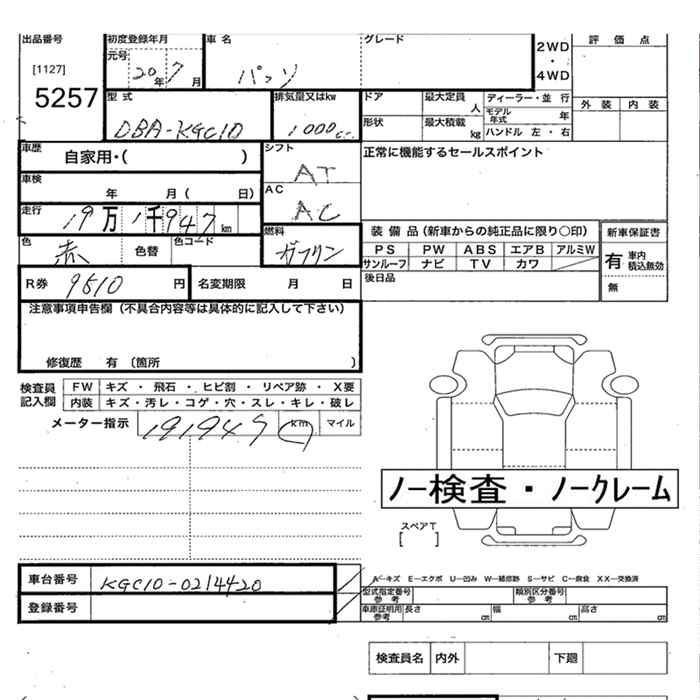 出品番号 初度登録年月 車名 グレード 2WD・4WD 評価点
[1127] 元号 20年 7月 パッソ
5257 型式 排気量又はkw ドア 最大定員 人 ディーラー・並行 外装 内装
DBA-KGC10 1000cc 形状 最大積載 kg モデル年式 年
ハンドル 左・右
車歴 自家用・( ) シフト AT 正常に機能するセールスポイント
車検 年 月( 日) AC AC
走行 19万1千947km 燃料 ガソリン 装備品(新車からの純正品に限り○印) 新車保証書
色 赤 色替 色コード PS PW ABS エアB アルミW 有 車内積込無効
サンルーフ ナビ TV カワ
R券 9510円 名変期限 月 日 後日品 無
注意事項申告欄(不具合内容等は具体的に記入して下さい)
修復歴 有 (箇所 )
検査員記入欄 FW キズ・飛石・ヒビ割・リペア跡・X要
内装 キズ・汚レ・コゲ・穴・スレ・キレ・破レ
メーター指示 191947 km マイル
ノー検査・ノークレーム
スペアT
[ ]
車台番号 KGC10-0214420 A-キズ E-エクボ U-凹み W-補修跡 S-サビ C-腐食 XX-交換済
登録番号 型式指定番号参考 類別区分番号参考
車庫証明用参考 長さ cm 幅 cm 高さ cm
検査員名 内外 下廻